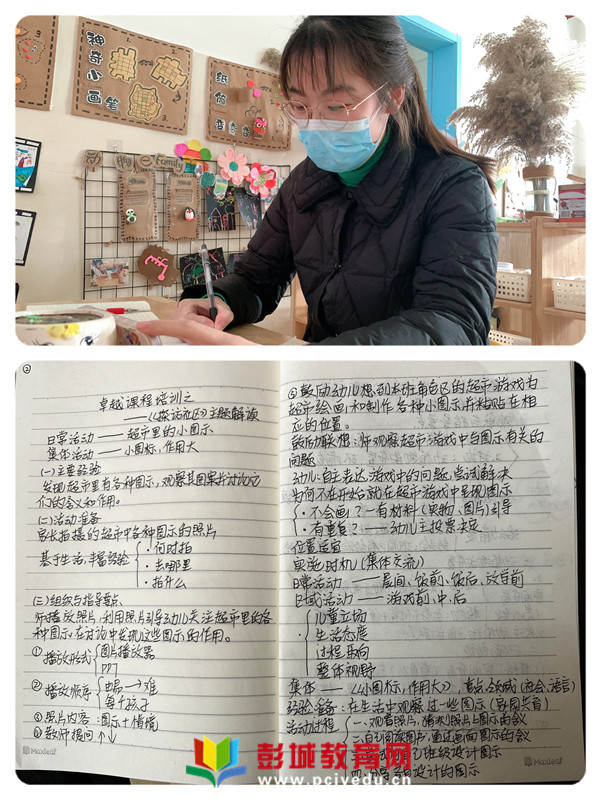 神奇小画笔
纸筒变变变
Family
②
卓越课程培训之
——《探访社区》主题解读
日常活动——超市里的小图示
集体活动——小图标,作用大
(一)主要经验
发现超市里有各种图示,观察其图案并讨论它
们的含义和作用。
(二)活动准备
家长拍摄的超市中各种图示的照片
基于生活,丰富经验
·何时拍
·去哪里
·拍什么
(三)组织与指导要点
师播放照片,利用照片引导幼儿关注超市里的各
种图示,在讨论中发现这些图示的作用。
①播放形式
图片播放器
PPT
②播放顺序
易→难
每个孩子
③照片内容:图示+情境
④教师提问↑↓
⑤鼓励幼儿想到本班角色区的超市游戏为
超市绘画,和制作各种小图示并粘贴在相
应的位置。
鼓励联想:师观察超市游戏中与图示有关的
问题
幼儿:自主表达游戏中的问题,尝试解决
为何不在开始就在超市游戏中呈现图示
·不会画?—有材料(果物、图片)引导
·有重复?——幼儿主投票决定
位置适宜
实施时机(集体交流)
日常活动——晨间、饭前、饭后、放学前
区域活动——游戏前、中、后
儿童立场
生活态度
过程取向
整体视野
集体——《小图标,作用大》,重点领域(社会、语言)
经验准备:在生活中观察过一些图示(家园共育)
活动过程
一、观看照片,猜测照片上图示的含义
二、自主阅读图书,重点面向图示的含义
班级设计图示
四、分享各自设计的图示
Maxleaf
Maxleaf
彭城教育网
www.pcivedu.cn